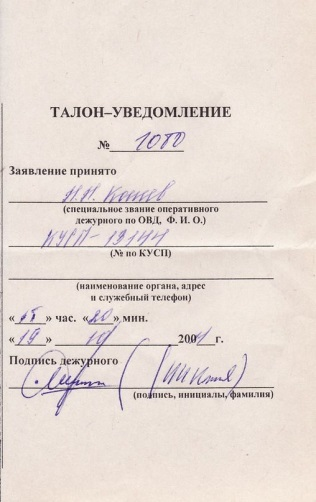 ТАЛОН–УВЕДОМЛЕНИЕ
№ 1000
Заявление принято
(специальное звание оперативного
дежурного по ОВД, Ф. И. О.)
КУСП-19144
(№ по КУСП)
(наименование органа, адрес
и служебный телефон)
«15» час. «20» мин.
«19» 10 2001 г.
Подпись дежурного
(подпись, инициалы, фамилия)